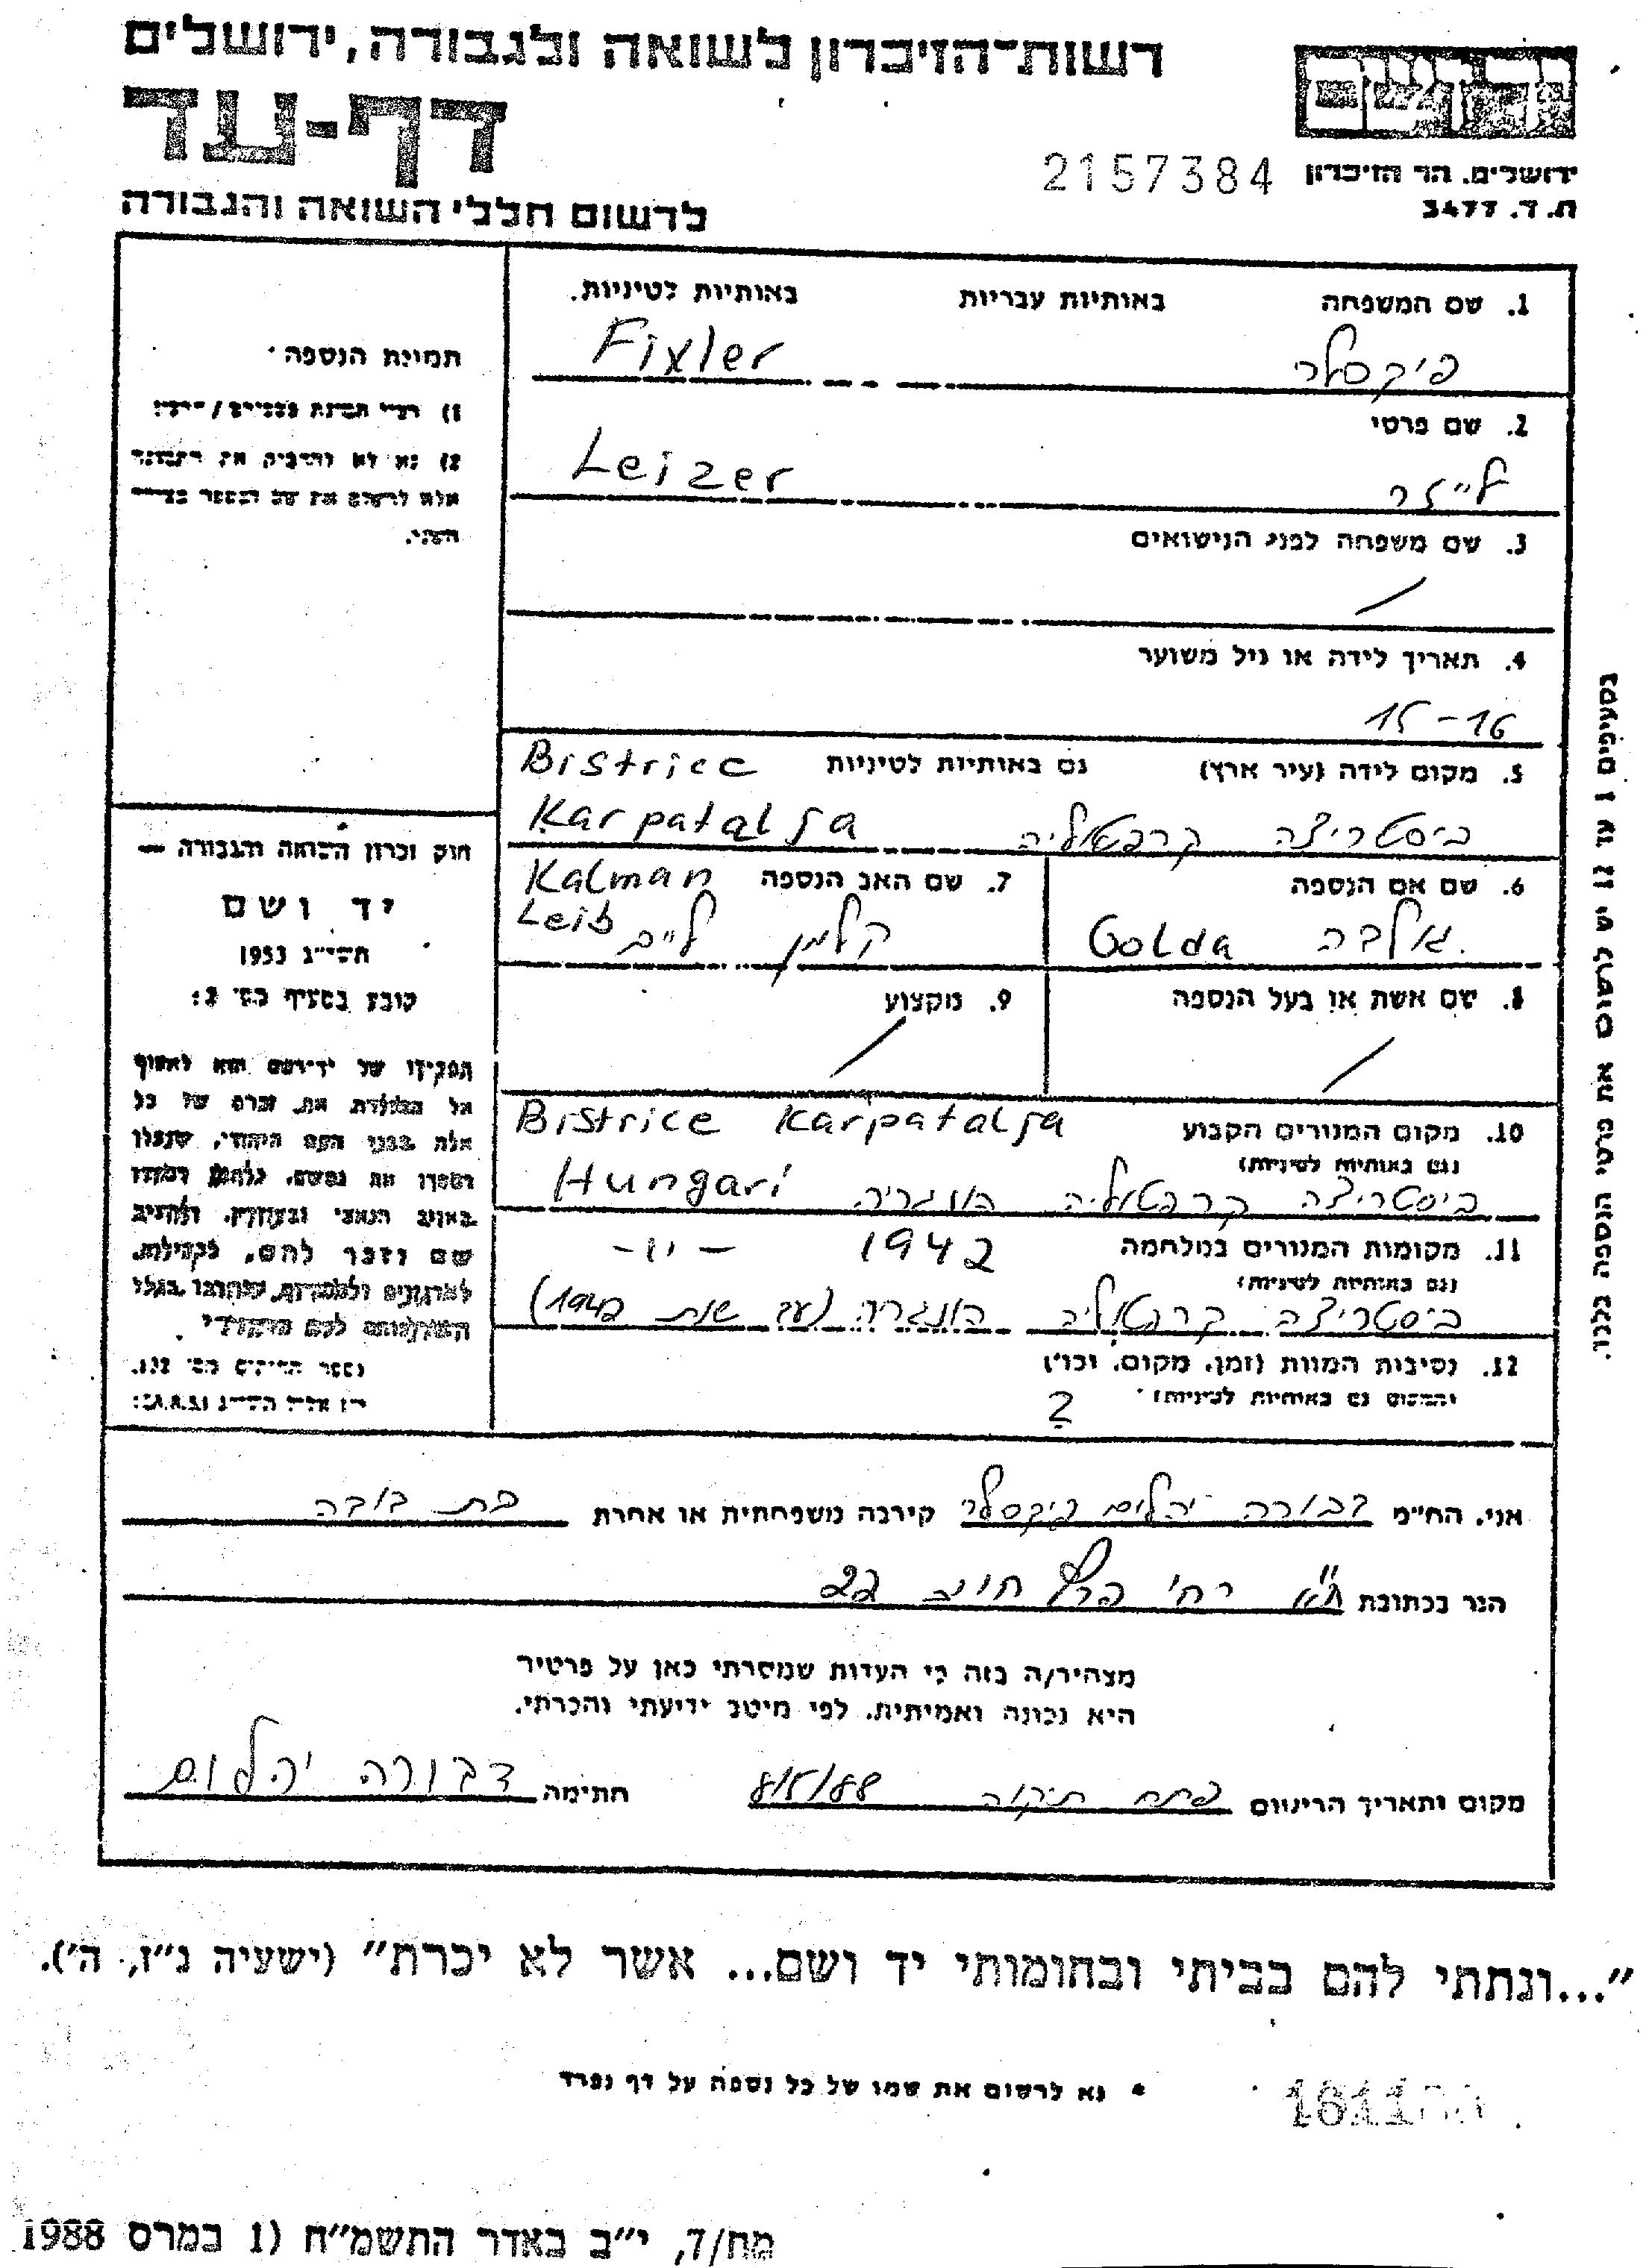 רשות־הזיכרון לשואה ולגבורה, ירושלים
דף-עד
לרשום חללי השואה והגבורה
2157384
ירושלים. הר הזיכרון
ת. ד. 3477
1. שם המשפחה באותיות עבריות באותיות לטיניות.
פיקסלר Fixler
2. שם פרטי
לייזר Leizer
3. שם משפחה לפני הנישואים
/
4. תאריך לידה או גיל משוער
15-16
5. מקום לידה (עיר ארץ) גם באותיות לטיניות Bistrice
ביסטריצה קרפטליה Karpatalja
6. שם אם הנספה
גולדה Golda
7. שם האב הנספה Kalman
קלמן לייב Leib
8. שם אשת או בעל הנספה
/
9. מקצוע
/
10. מקום המגורים הקבוע Bistrice Karpatalja
(גם באותיות לטיניות)
ביסטריצה קרפטליה הונגריה Hungari
11. מקומות המגורים במלחמה 1942 -״-
(גם באותיות לטיניות)
ביסטריצה קרפטליה הונגריה (עד שנת 1942)
12. נסיבות המוות (זמן, מקום, וכו׳)
(המקום גם באותיות לטיניות) ?
תמונת הנספה
2) נא לא להדביק את התמונה
אלא לרשום את שם הנספה בצידה
השני.
חוק זכרון השואה והגבורה —
יד ושם
תשי״ג 1953
קובע בסעיף מס׳ 2:
תפקידו של יד־ושם הוא לאסוף
אל המולדת את זכרם של כל
אלה מבני העם היהודי, שנפלו
ומסרו את נפשם, נלחמו ומרדו
באויב הנאצי ובעוזריו, ולהציב
שם וזכר להם, לקהילות,
לארגונים ולמוסדות שחרבו בגלל
השתייכותם לעם היהודי
אני, הח״מ דבורה יהלום פיקסלר קירבה משפחתית או אחרת בת דודה
הגר בכתובת ת״א רח׳ פרץ חיות 22
מצהיר/ה בזה כי העדות שמסרתי כאן על פרטיה
היא נכונה ואמיתית, לפי מיטב ידיעתי והכרתי.
מקום ותאריך הרישום פתח תקוה 8/5/88 חתימה דבורה יהלום
״...ונתתי להם בביתי ובחומותי יד ושם... אשר לא יכרת״ (ישעיה נ״ו, ה׳).
* נא לרשום את שמו של כל נספה על דף נפרד
מח/ד, י״ב באדר התשמ״ח (1 במרס 1988